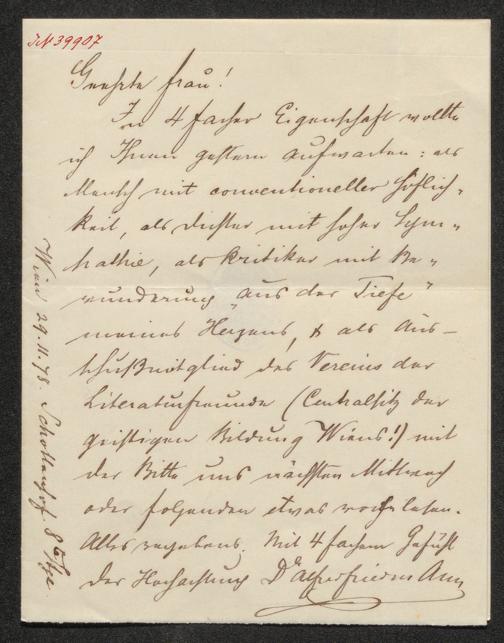 IN 39907
Geehrte Frau!
In 4 facher Eigenschaft wollte
ich Ihnen gestern aufwarten: als
Mensch mit conventioneller Höflich-
keit, als Dichter mit hoher Sym-
pathie, als Kritiker mit Be-
wunderung "aus der Tiefe"
meines Herzens, & als Aus-
schußmitglied des Vereins der
Literaturfreunde (Centralsitz der
geistigen Bildung Wiens!) mit
der Bitte uns nächsten Mittwoch
oder folgenden etwas vorzulesen.
Alles vergebens. Mit 4 fachem Gefühl
der Hochachtung Dr Alfred Friedmann
Wien 29.11.78. Schottenhof. 8